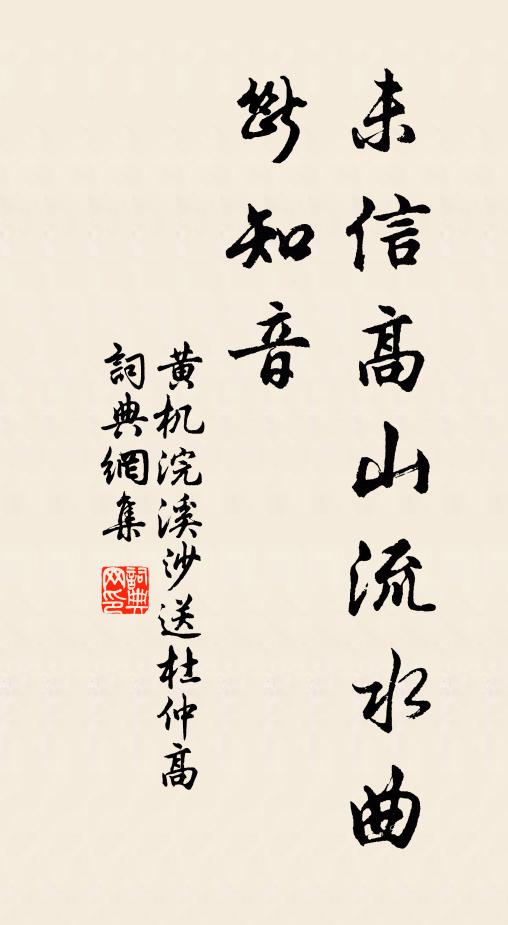 未信髙山流水曲
斷知音
黄机浣溪沙送杜仲髙
詞典網集
詞典
网印